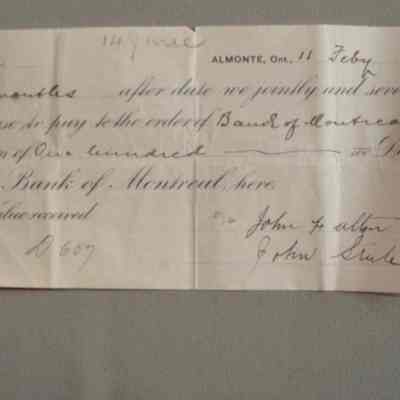 ALMONTE, Ont., 11 Feby
months after date we jointly and seve
se to pay to the order of Bank of Montrea
m of One hundred
Bank of Montreal, here.
alue received
John
D 607 John